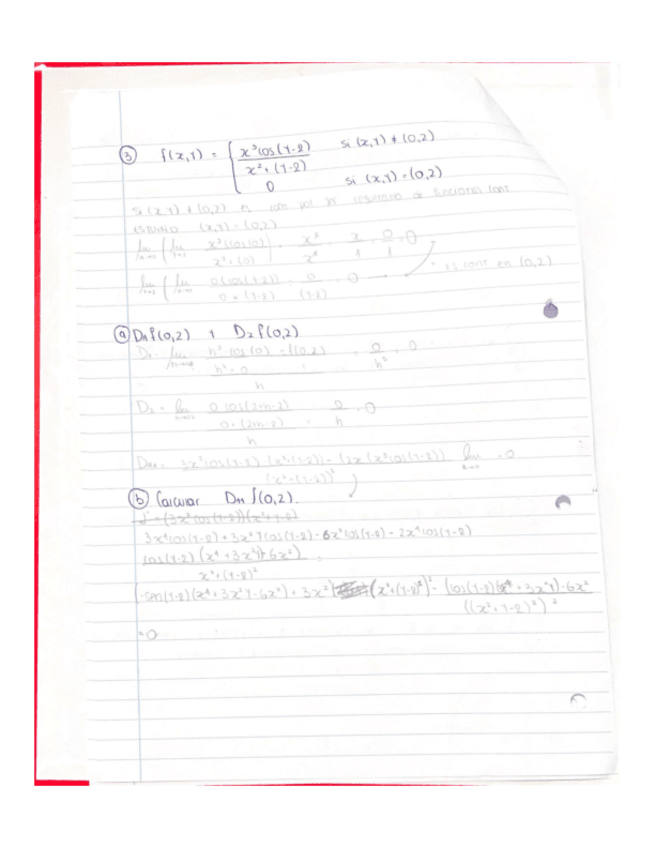 ③ f(x,y) = { x³cos(y-2) / x²+(y-2) si (x,y) ≠ (0,2)
0 si (x,y)=(0,2)
si (x,y) ≠ (0,2) es cont por ser de funciones cont
ESTUDIO (x,y) = (0,2)
lim ( lim x³cos(0) / x²+(0) = x³/x² = x/1 = 0/1 = 0
lim ( lim 0 cos(y-2) / 0+(y-2) = 0/(y-2) = 0 → es cont en (0,2)
ⓐ D₁f(0,2) y D₂f(0,2)
D₁= lim h³cos(0) - f(0,2) / h²+0 / h = 0/h² = 0
D₂ = lim 0 cos(2+h-2) / 0+(2+h-2) / h = 0/h = 0
D₁₁= 3x²cos(y-2) (x²+(y-2)) - (2x(x³cos(y-2)) / (x²+(y-2))² lim = 0
ⓑ Calcular D₁₁ f(0,2).
3x⁴cos(y-2) + 3x²y cos(y-2) - 6x²cos(y-2) - 2x⁴cos(y-2)
cos(y-2) (x⁴+3x²y-6x²)
x²+(y-2)²
(-sen(y-2)(x⁴+3x²y-6x²)+3x²) (x²+(y-2)²)² - (cos(y-2)(x⁴+3x²y)-6x²
((x²+y-2)²)²
=0